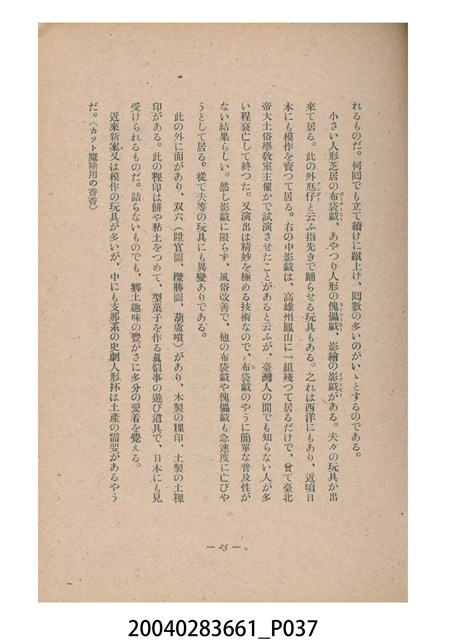 れるものだ。何囘でも立て續けに蹴上げ、囘數の多いのがいゝとするのである。
小さい人形芝居の布袋戱、あやつり人形の傀儡戱、影繪の影戱がある。夫々の玩具が出
來て居る。此の外尫仔と云ふ指先きで踊らせる玩具もある。之れは西洋にもあり、近頃日
本にも模作を賣つて居る。右の中影戱は、高雄州鳳山に一組殘つて居るだけで、曾て臺北
帝大土俗學敎室主催かで試演させたことがあると云ふが、臺灣人の間でも知らない人が多
い程衰亡して終つた。又演出は精妙を極める技術なので、布袋戱のやうに簡單な普及性が
ない結果らしい。然し影戱に限らず、風俗改善で、他の布袋戱や傀儡戱も急速度に亡びや
うとして居る。從て夫等の玩具にも異變ありである。
此の外に面があり、双六(陞官圖、攬勝圖、葫蘆墩)があり、木製の粿印、土製の土粿
印がある。此の粿印は餅や粘土をつめて、型菓子を作る眞似事の遊び道具で、日本にも見
受けられるものだ。詰らないものでも、鄕土趣味の豐がさに多分の愛着を覺える。
近來新案又は模作の玩具が多いが、中にも支那系の史劇人形抔は土產の需要があるやう
だ。(カット魔除用の香香)
— 25 —
20040283661_P037